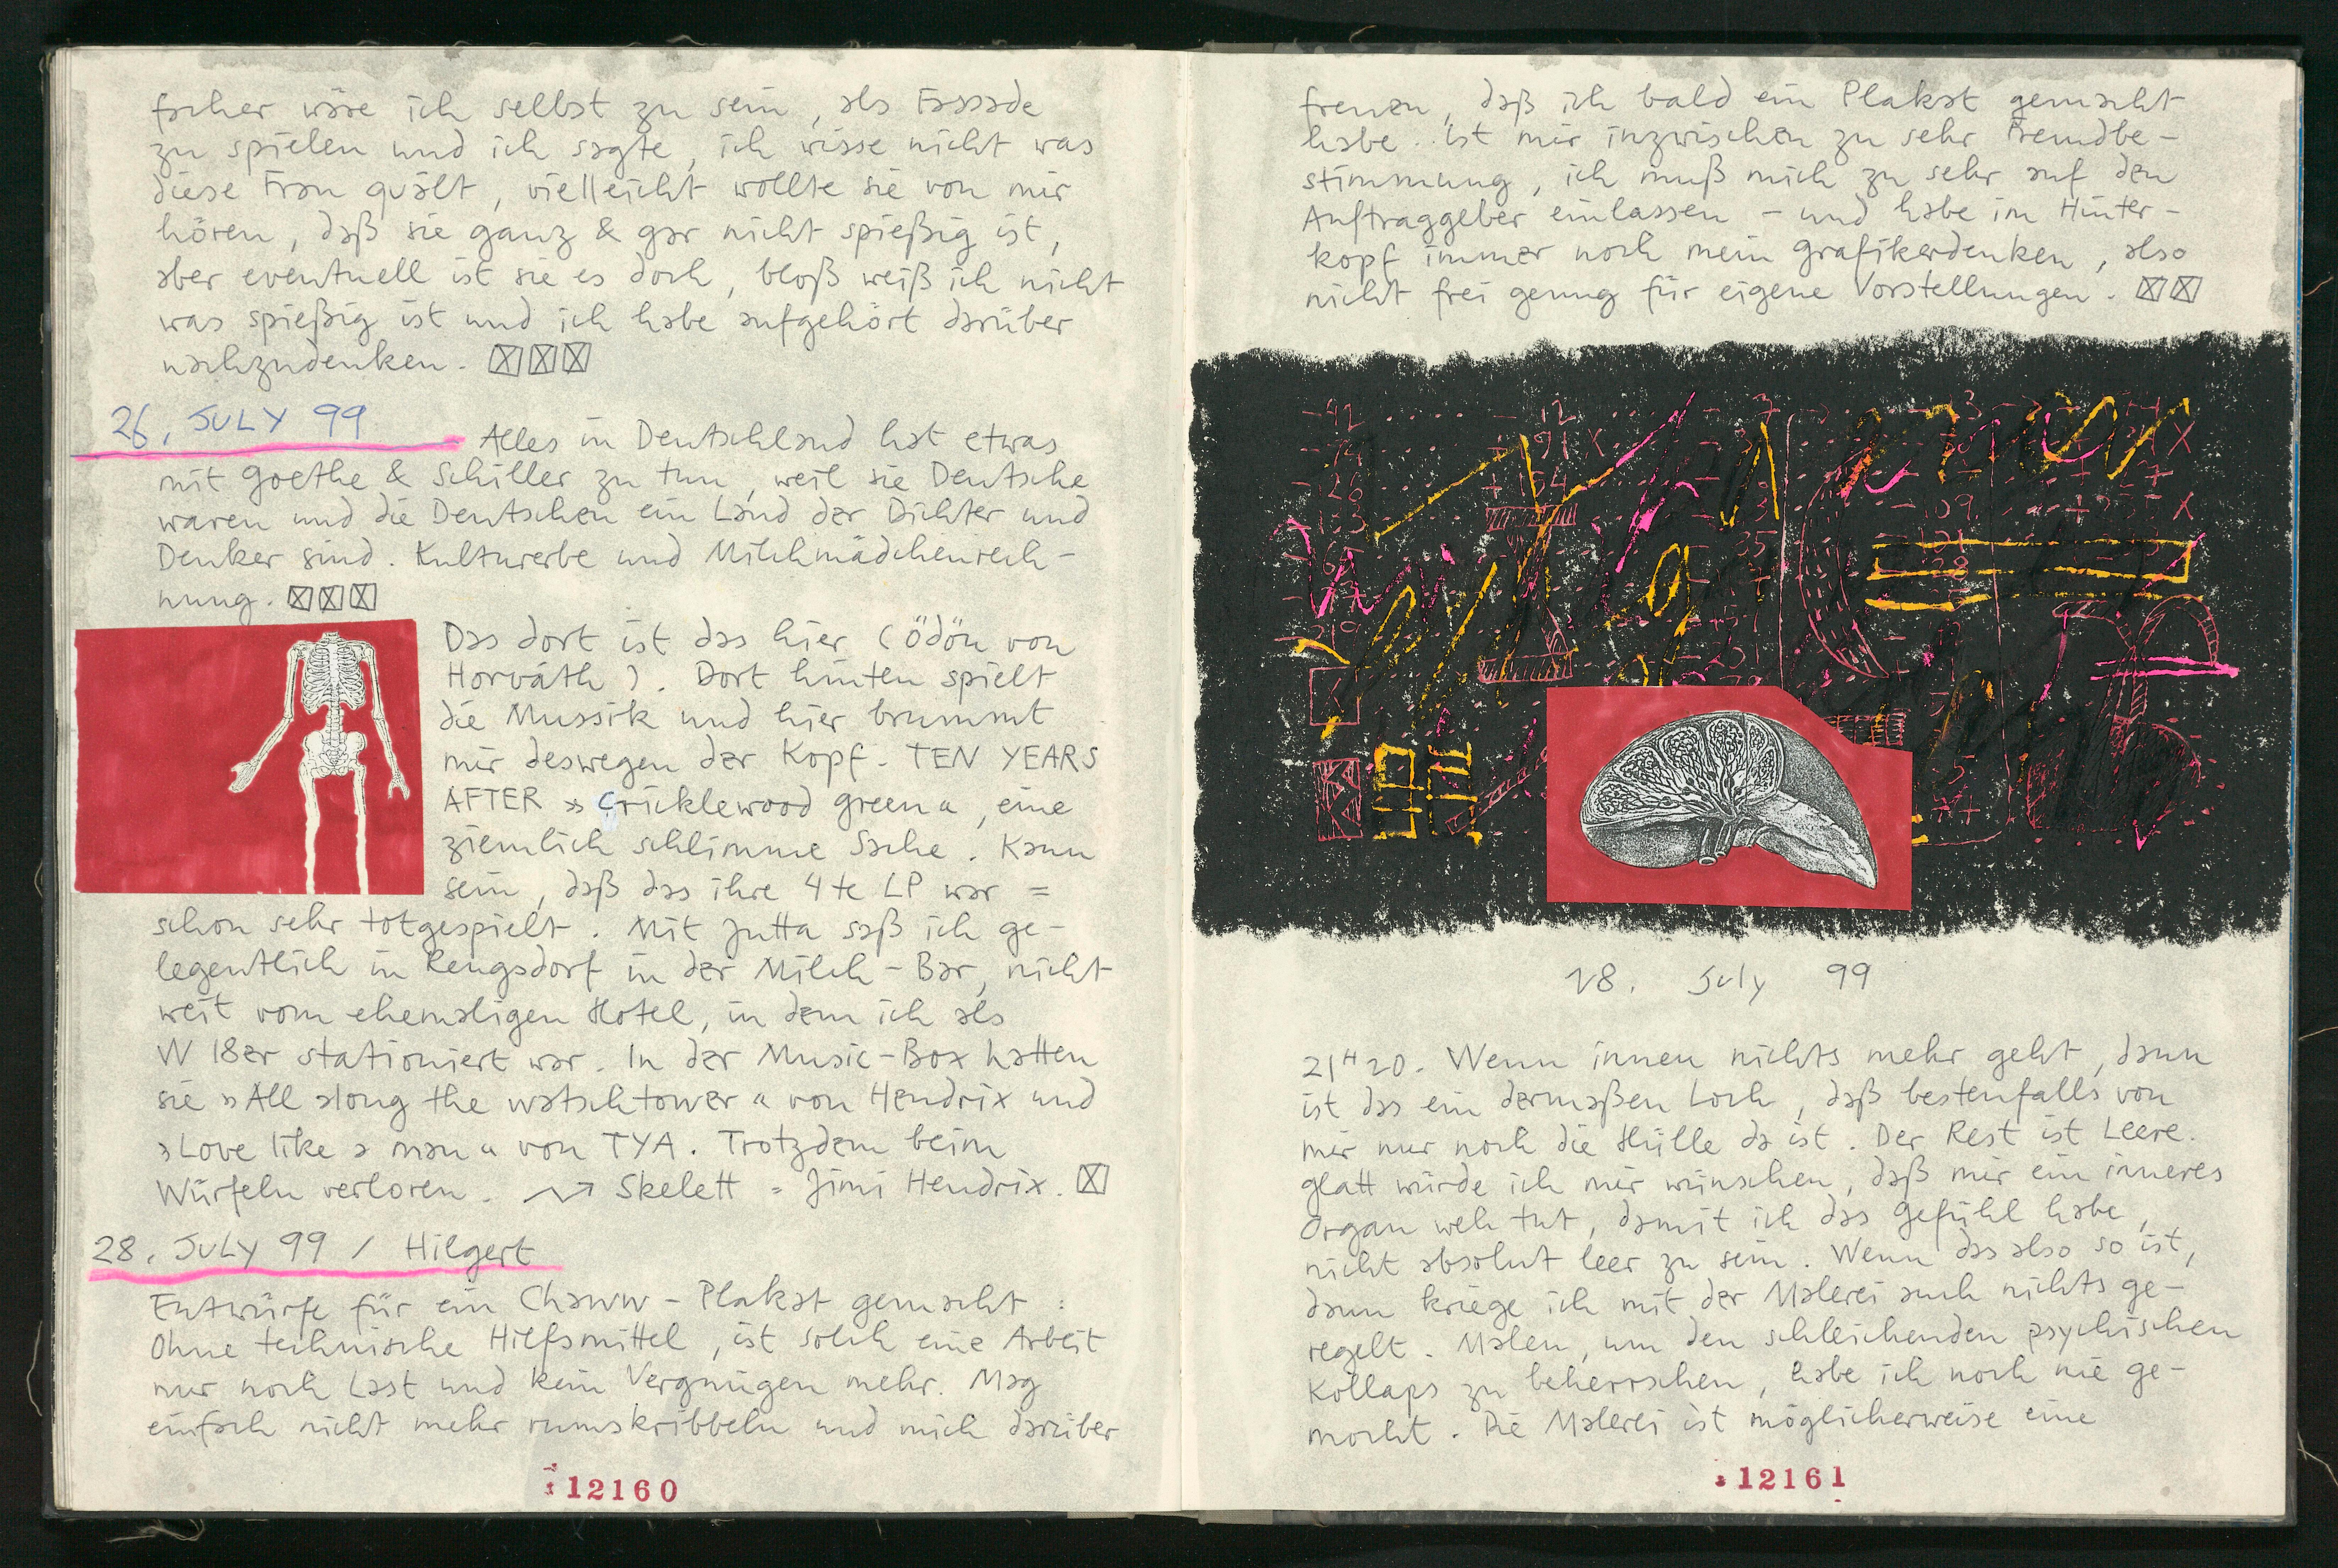 facher wäre ich selbst zu sein, als Fassade
zu spielen und ich sagte, ich wisse nicht was
diese Frau quält, vielleicht wollte sie von mir
hören, daß sie ganz & gar nicht spießig ist,
aber eventuell ist sie es doch, bloß weiß ich nicht
was spießig ist und ich habe aufgehört darüber
nachzudenken. ☒☒☒
26. JULY 99
Alles in Deutschland hat etwas
mit Goethe & Schiller zu tun, weil sie Deutsche
waren und die Deutschen ein Land der Dichter und
Denker sind. Kulturerbe und Milchmädchenrech-
nung. ☒☒☒
Das dort ist das hier (Ödön von
Horváth). Dort hinten spielt
die Mussik und hier brummt
mir deswegen der Kopf. TEN YEARS
AFTER »Cricklewood green«, eine
ziemlich schlimme Sache. Kann
sein, daß das ihre 4te LP war =
schon sehr totgespielt. Mit Jutta saß ich ge-
legentlich in Rengsdorf in der Milch-Bar, nicht
weit vom ehemaligen Hotel, in dem ich als
W 18er stationiert war. In der Music-Box hatten
sie »All along the watschtower« von Hendrix und
»Love like a man« von TYA. Trotzdem beim
Würfeln verloren. Skelett = Jimi Hendrix. ☒
28. JULY 99 / Hilgert
Entwürfe für ein Chaww-Plakat gemacht :
Ohne technische Hilfsmittel, ist solch eine Arbeit
nur noch Last und kein Vergnügen mehr. Mag
einfach nicht mehr rumskribbeln und mich darüber
12160
freuen, daß ich bald ein Plakat gemacht
habe. Ist mir inzwischen zu sehr Fremdbe-
stimmung, ich muß mich zu sehr auf den
Auftraggeber einlassen - und habe im Hinter-
kopf immer noch mein Grafikerdenken, also
nicht frei genug für eigene Vorstellungen. ☒☒
28. July 99
21H20. Wenn innen nichts mehr geht, dann
ist das ein dermaßen Loch, daß bestenfalls von
mir nur noch die Hülle da ist. Der Rest ist Leere.
Glatt würde ich mir wünschen, daß mir ein inneres
Organ weh tut, damit ich das Gefühl habe,
nicht absolut leer zu sein. Wenn das also so ist,
dann kriege ich mit der Malerei auch nichts ge-
regelt. Malen, um den schleichenden psychischen
Kollaps zu beherrschen, habe ich noch nie ge-
mocht. Die Malerei ist möglicherweise eine
12161